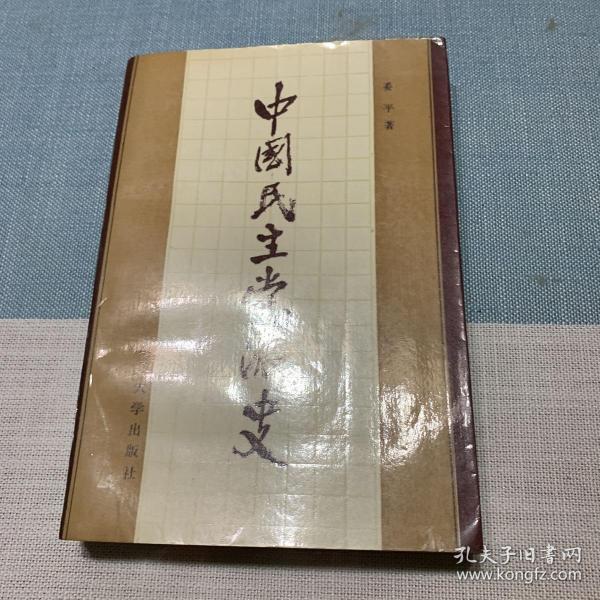 姜平著
中國民主党派史
大学出版社
孔夫子旧書网
www.kongfz.com